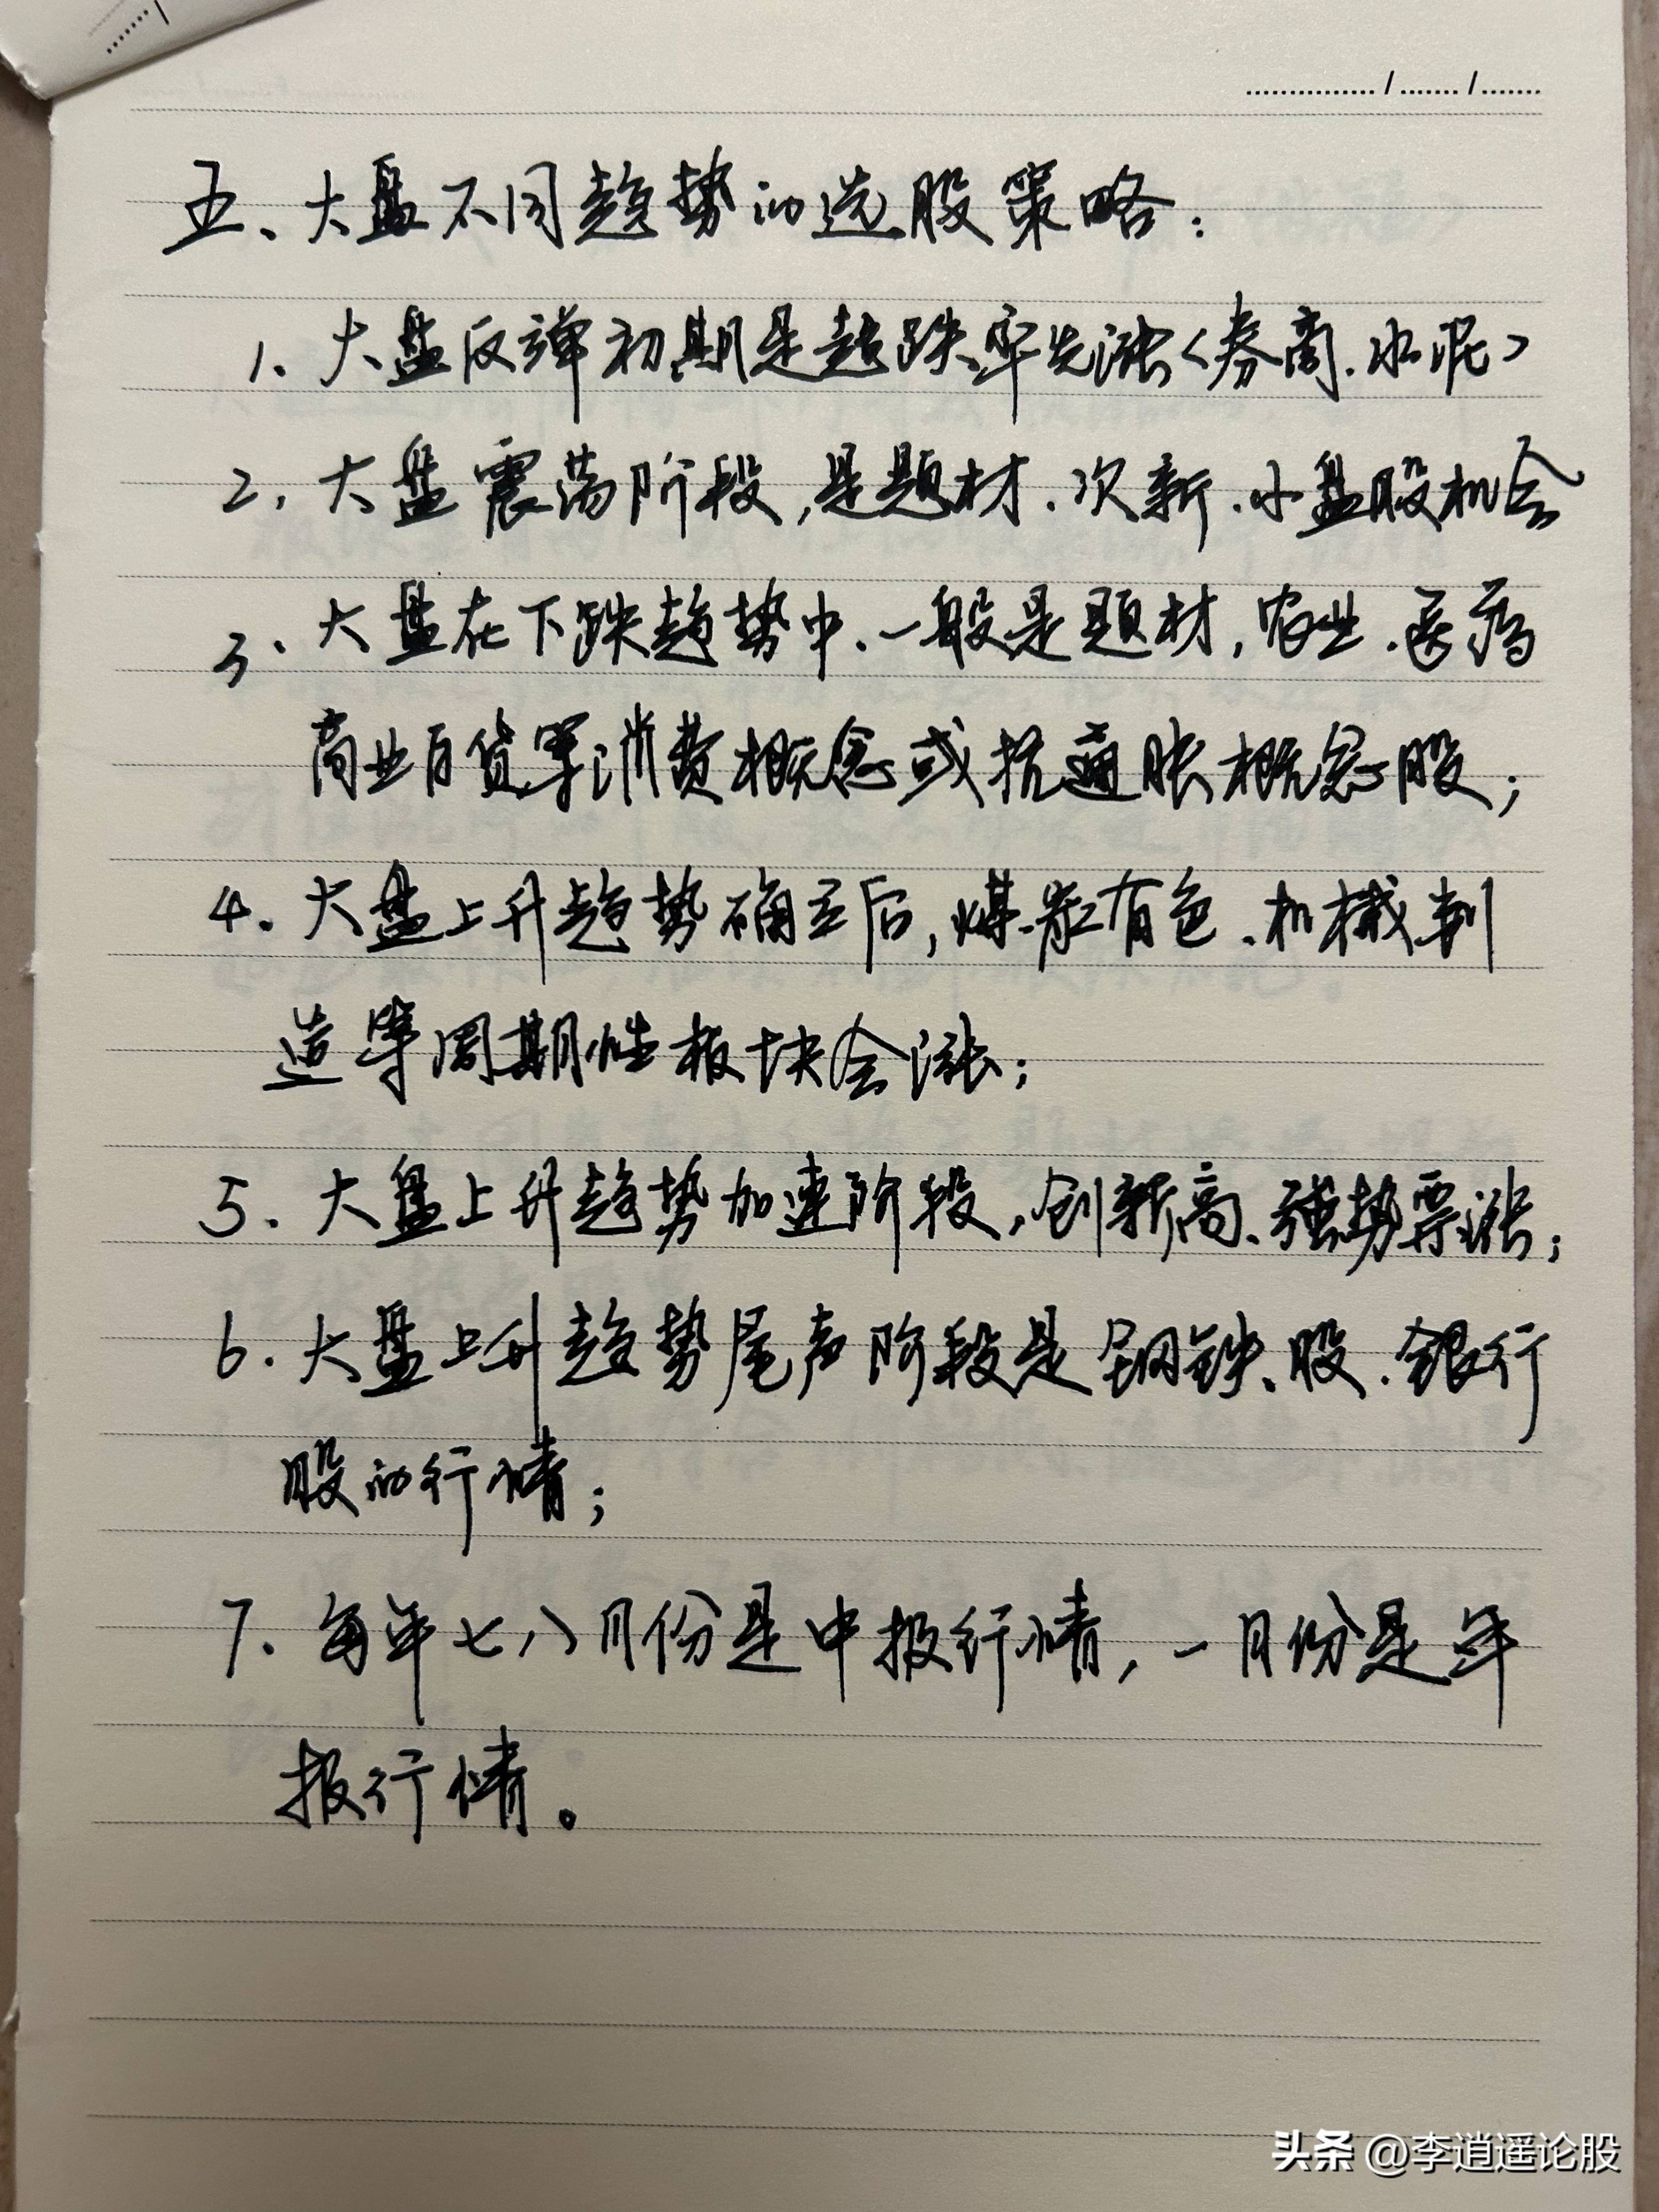 ............... / ....... / .......
五、大盘不同趋势的选股策略：
1、大盘反弹初期是超跌率先涨<券商、水泥>
2、大盘震荡阶段，是题材、次新、小盘股机会
3、大盘在下跌趋势中、一般是题材，农业、医药
商业百货等消费概念或抗通胀概念股；
4、大盘上升趋势确立后，煤炭有色、机械制
造等周期性板块会涨；
5、大盘上升趋势加速阶段，创新高、强势票涨；
6、大盘上升趋势尾声阶段是钢铁、股、银行
股的行情；
7、每年七八月份是中报行情，一月份是年
报行情。
头条 @李逍遥论股